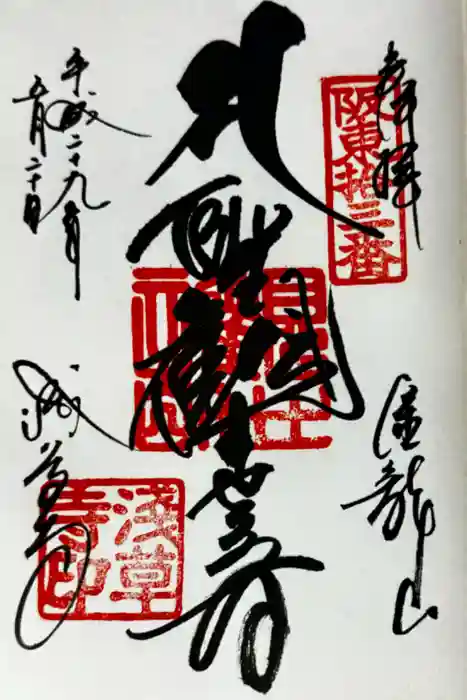 奉拝
阪東拾三番
金龍山
聖観世音
淺草
寺印
浅草寺
平成二十九年
五月二十日